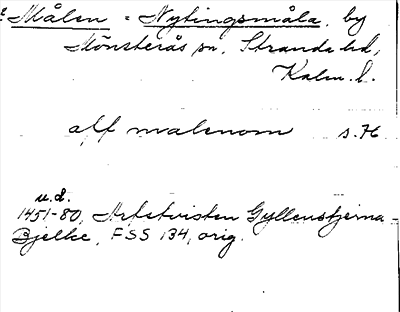 ! Målen = Nytingsmåla, by
Mönsterås sn, Stranda hd,
Kalm. l.
aff malenom s. 76
u.d.
1451-80, Arfstvisten Gyllenstjerna-
Bjelke, FSS 134, orig.